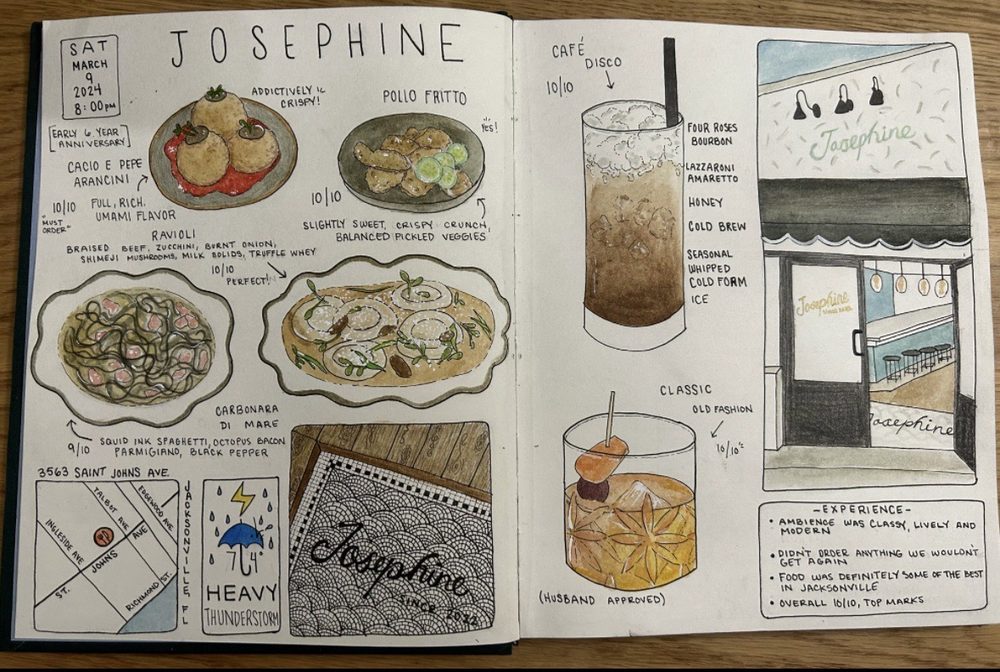 JOSEPHINE
SAT
MARCH
9
2024
8:00pm
EARLY 6 YEAR
ANNIVERSARY
ADDICTIVELY
CRISPY!
CACIO E PEPE
ARANCINI
10/10
"MUST
ORDER"
FULL, RICH,
UMAMI FLAVOR
POLLO FRITTO
yes!
10/10
SLIGHTLY SWEET, CRISPY CRUNCH,
BALANCED PICKLED VEGGIES
RAVIOLI
BRAISED BEEF, ZUCCHINI, BURNT ONION,
SHIMEJI MUSHROOMS, MILK SOLIDS, TRUFFLE WHEY
10/10
PERFECT!
CARBONARA
DI MARE
9/10
SQUID INK SPAGHETTI, OCTOPUS BACON
PARMIGIANO, BLACK PEPPER
3563 SAINT JOHNS AVE.
JACKSONVILLE, FL
TALBOT AVE
EDGEWOOD AVE
INGLESIDE AVE
ST. JOHNS AVE
RICHMOND ST.
74°
HEAVY
THUNDERSTORM
Josephine
SINCE 2022
CAFÉ
DISCO
10/10
FOUR ROSES
BOURBON
LAZZARONI
AMARETTO
HONEY
COLD BREW
SEASONAL
WHIPPED
COLD FORM
ICE
CLASSIC
OLD FASHION
10/10
(HUSBAND APPROVED)
Josephine
Josephine
Josephine
-EXPERIENCE-
• AMBIENCE WAS CLASSY, LIVELY AND
MODERN
• DIDN'T ORDER ANYTHING WE WOULDN'T
GET AGAIN
• FOOD WAS DEFINITELY SOME OF THE BEST
IN JACKSONVILLE
• OVERALL 10/10, TOP MARKS